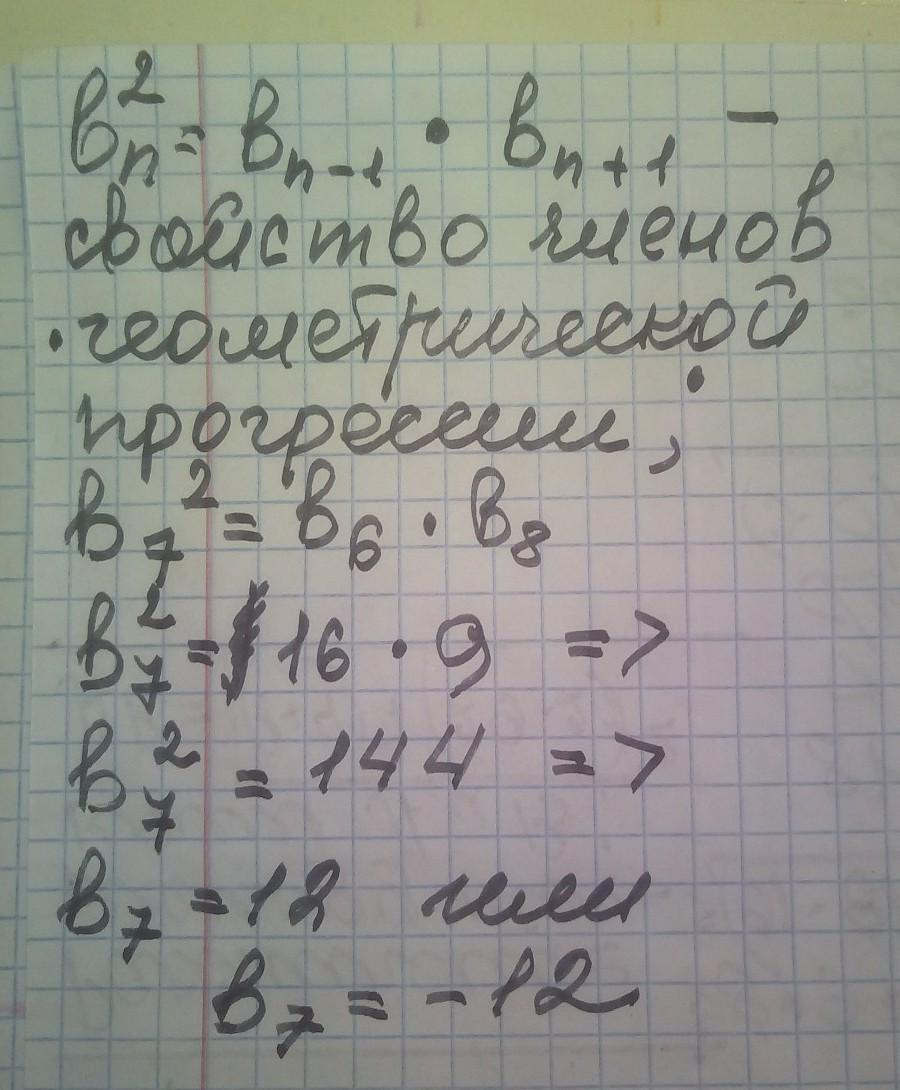 в²ₙ = вₙ₋₁ · вₙ₊₁ –
свойство членов
геометрической
прогрессии;
в₇² = в₆ · в₈
в₇² = 16 · 9 =>
в₇² = 144 =>
в₇ = 12 или
в₇ = -12